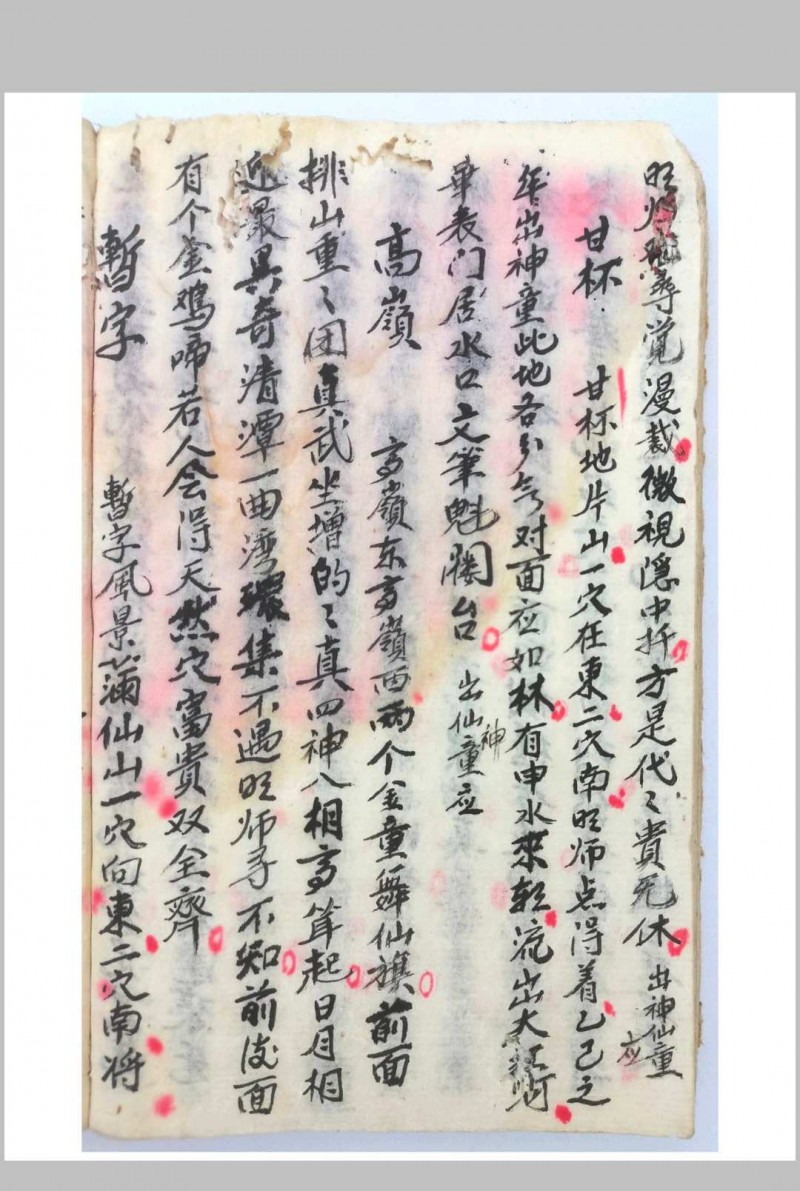 旺师■尋覚漫裁微視隐中扦方是代〻貴无休 出神仙童应
甘杯 甘杯地片山一穴在東二穴南旺师点得着乙已之
年出神童此地各分气对面应如林有申水來朝流出大江
华表门居水口文筆魁閣台 出仙童应 神
高嶺 高嶺东高嶺西两个金童舞仙旗前面
排山重〻团真武坐增的〻真四神八相高耸起日月相
迎最異奇清潭一曲湾環集不遇旺师寻不知前後面
有个金鸡啼若人会得天然穴富貴双全齊
暫字 暫字風景蒲仙山一穴向東二穴南将